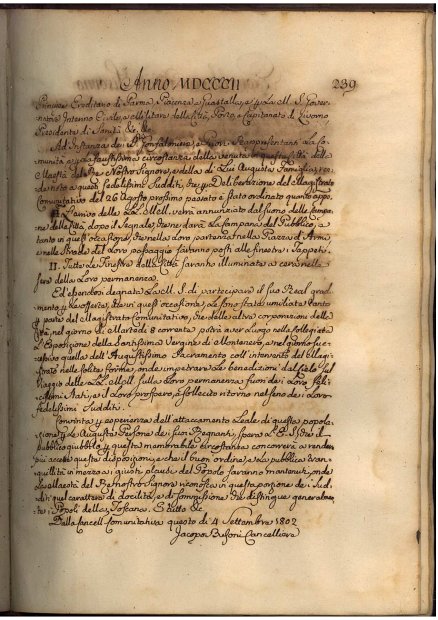 Anno MDCCCII
239
Principe Ereditario di Parma Piacenza, e Guastalla, e per la M. S. Gover-
natore Interino Civile, e Militare della Città, Porto, e Capitanato di Livorno
Presidente di Sanità &c. &c.
Ad Instanza dei Gonfaloniere, e Rappresentanti la Co-
munità per la faustissima circostanza della venuta in questa Città della
Maestà del Re Nostro Signore, e della di Lui Augusta Famiglia,
a questi fedelissimi Sudditi, che per Deliberazione del Magistrato
Comunitativo del 26 Agosto prossimo passato è stato ordinato quanto appo.
I. L'arrivo delle LL. MM. verrà annunziato dal suono delle Campa-
ne della Città, dopo il segnale, che ne darà la Campana del Pubblico, e in-
tanto in quest'occasione, che nella Loro partenza nella Piazza d'Arme,
e nelle Strade di Loro passaggio saranno posti alle finestre i Tappeti.
II. Tutte Le Finestre della Città saranno illuminate a cera nelle
sere della Loro permanenza.
Ed essendosi degnata La M. S. di partecipare il suo Real gradi-
mento per Le offerte, che in quest'occasione, Le sono state umiliate tanto
per parte del Magistrato Comunitativo, che delle altre corporazioni della
Città, nel giorno di Martedì 7 corrente potrà aver Luogo nella Collegiata
L'Esposizione della Santissima Vergine di Montenero, e nel giorno suc-
cessivo quella dell'Augustissimo Sacramento coll'intervento del Magi-
strato nelle solite forme, onde impetrare Le benedizioni dal Cielo sul
Viaggio delle LL. MM. sulla Loro permanenza fuori dei Loro feli-
cissimi Stati, e il Loro prospero, e sollecito ritorno nel seno dei Loro
fedelissimi Sudditi.
Convinta per esperienza dell'attaccamento Leale di questa popola-
zione per Le Auguste Persone dei suoi Regnanti, spera l'E. S. che il
pubblico giubbilo per questa memorabile circostanza concorrerà a render
più accette queste disposizioni, e che il buon ordine, e La pubblica tran-
quillità in mezzo ai giusti plausi del Popolo saranno mantenuti, onde
La Maestà del Re nostro Signore riconosca in questa porzione dei Sud-
diti quel carattere di docilità, e di sommissione che distingue generalmen-
te i Popoli della Toscana. &c.
Dalla Cancell. Comunitativa questo dì 4 Settembre 1802
Jacopo Cancelliere